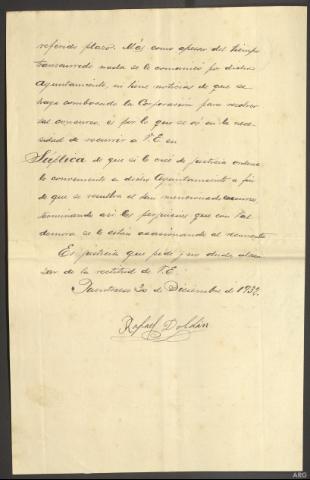 referido plazo. Mas como apesar del tiempo
transcurrido nada se le comunicó por dicho
Ayuntamiento, ni tiene noticias de que se
haya combocado la Corporación para resolver
tal concurso, és por lo que se vé en la nece-
sidad de recurrir a V.E. en
Súplica de que si lo cree de justicia ordene
lo conveniente a dicho Ayuntamiento a fin
de que se resuelva el mencionado concurso
terminando asi los perjuicios que con tal
demora se le están ocasionando al recurrente
Es justicia que pide y no duda alcan-
zar de la rectitud de V.E.
20 de Diciembre de 1932.
Rafael Doldán
ARG